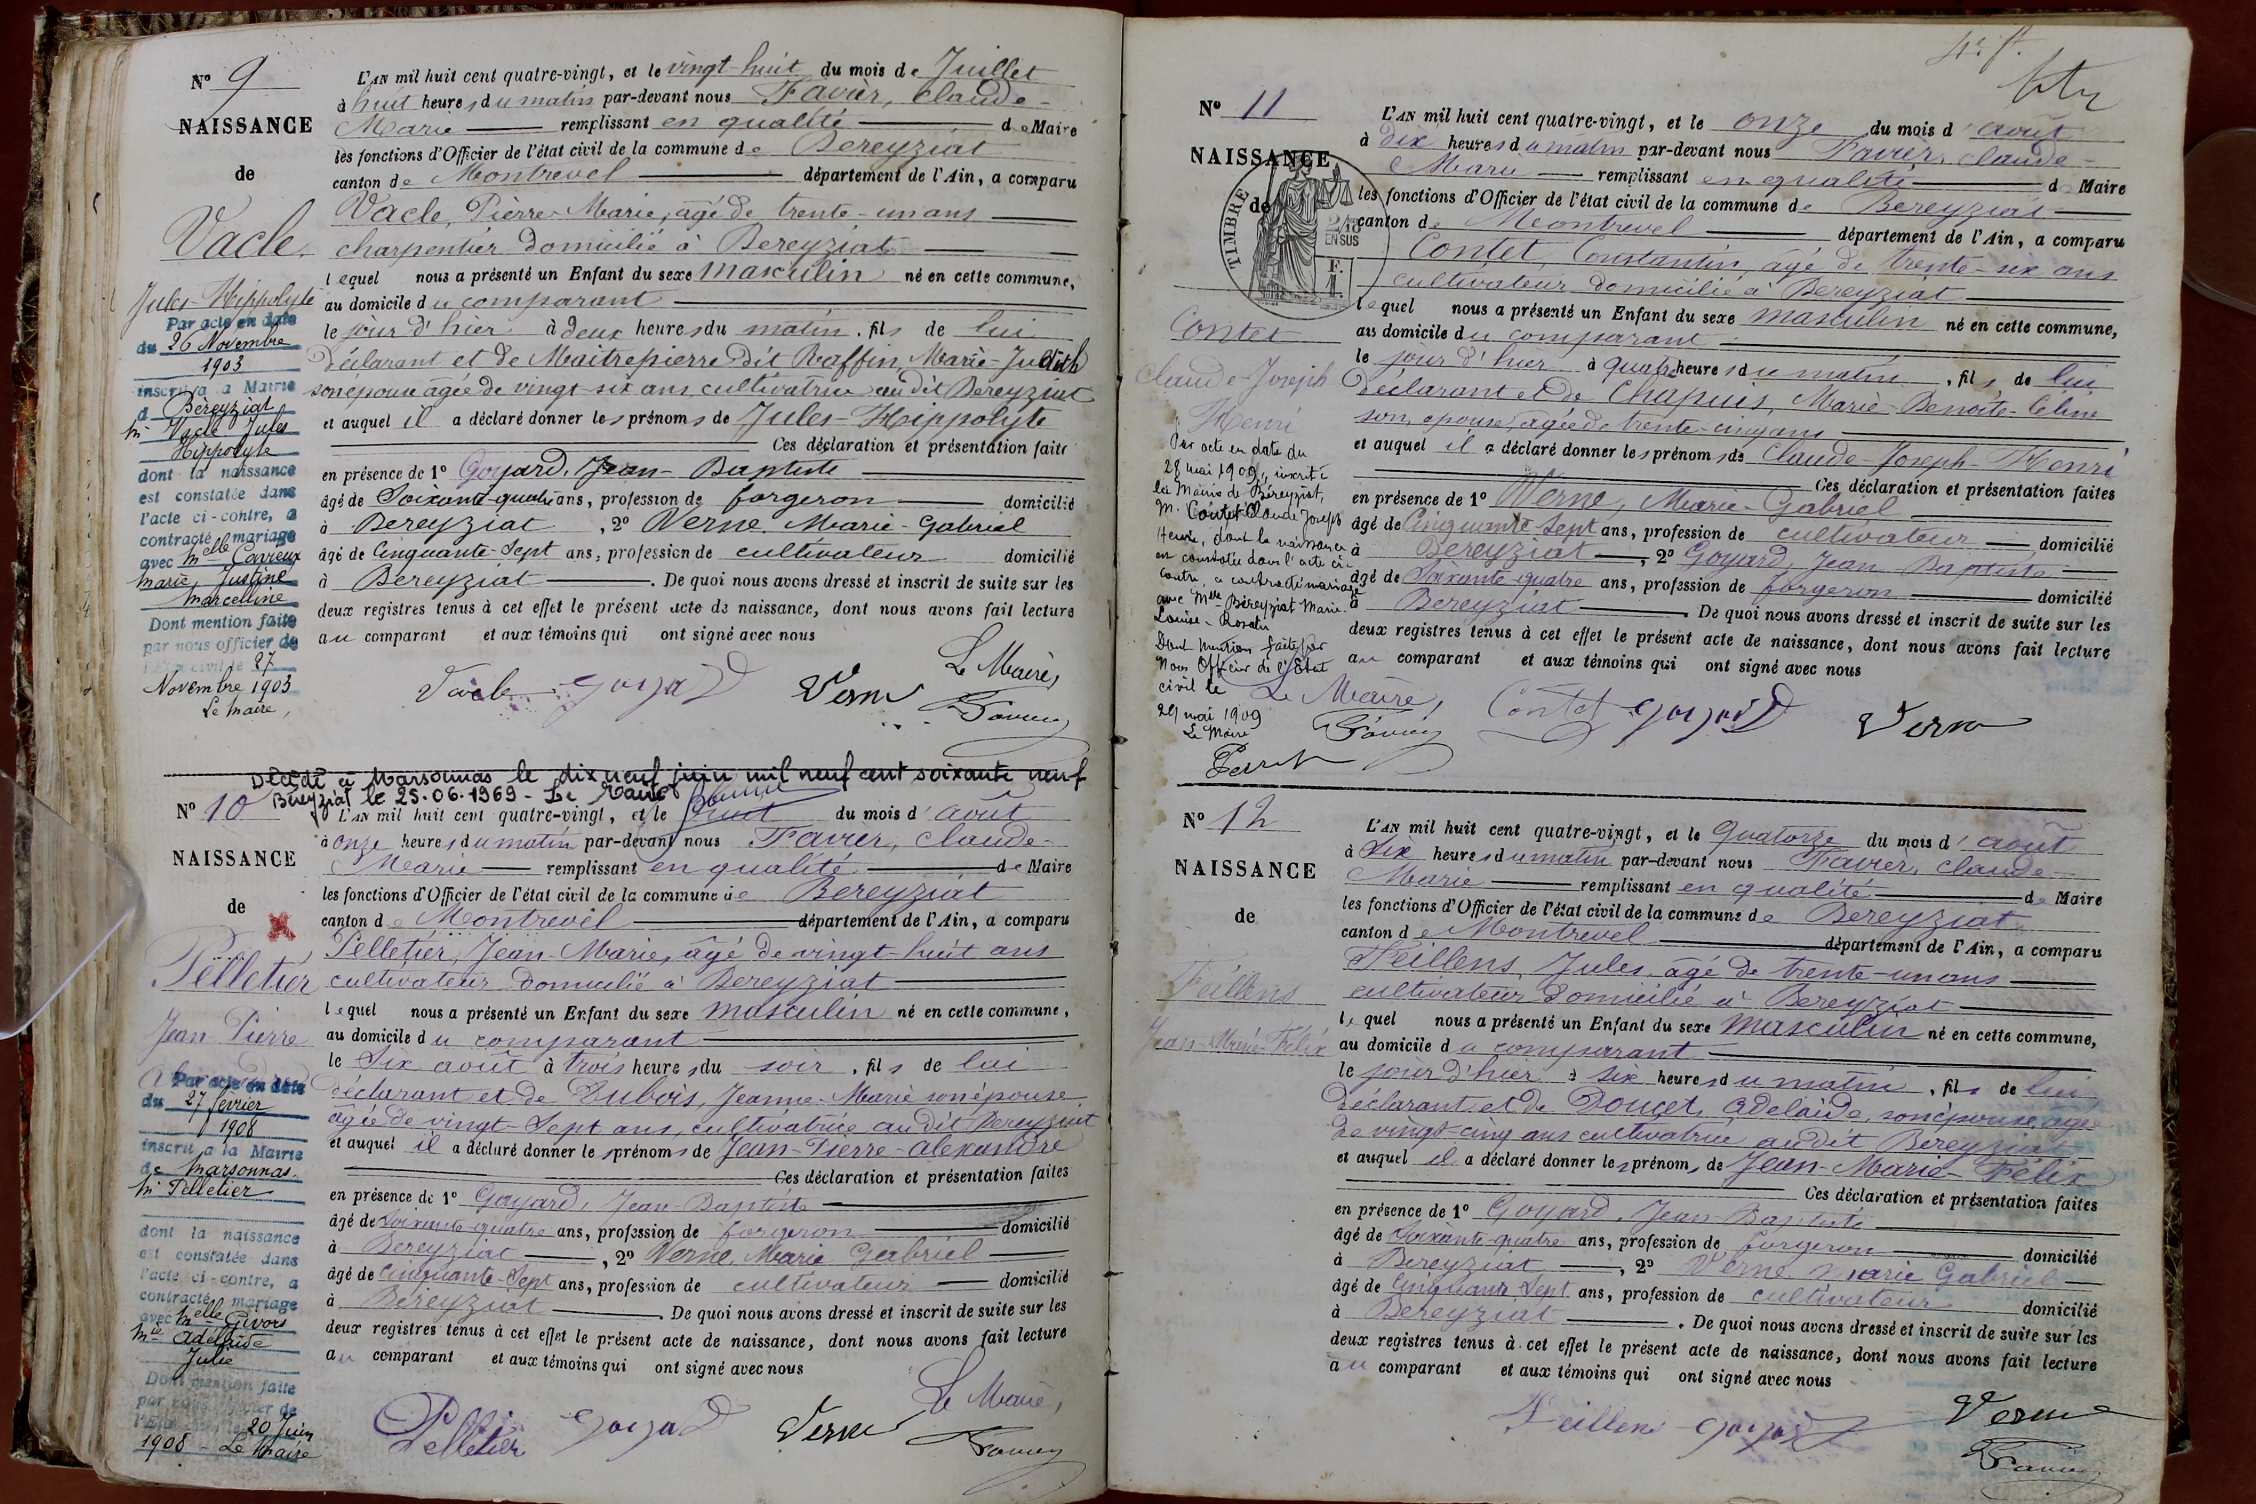 N° 9
NAISSANCE
de
Vacle,
Jules-Hippolyte
Par acte en date
du 26 Novembre
1903
inscrit à la Mairie
d Béréyziat
M. Vacle Jules
Hippolyte
dont la naissance
est constatée dans
l'acte ci-contre, a
contracté mariage
avec Melle
Marie Justine
Marcelline
Dont mention faite
par nous officier de
l'Etat civil le 27
Novembre 1903
Le Maire,
L'AN mil huit cent quatre-vingt, et le vingt-huit du mois de Juillet
à huit heures du matin par-devant nous Favier, Claude-
Marie remplissant en qualité de Maire
les fonctions d'Officier de l'état civil de la commune de Bereyziat
canton de Montrevel département de l'Ain, a comparu
Vacle, Pierre-Marie, âgé de trente-un ans
charpentier domicilié à Bereyziat
lequel nous a présenté un Enfant du sexe masculin né en cette commune,
au domicile du comparant
le jour d'hier à deux heures du matin, fils de lui
déclarant et de Maitrepierre dit Raffin, Marie-Judith
son épouse âgée de vingt-six ans, cultivatrice au dit Bereyziat
et auquel il a déclaré donner les prénoms de Jules-Hippolyte
Ces déclaration et présentation faites
en présence de 1° Goyard, Jean-Baptiste
âgé de Soixante-quatre ans, profession de forgeron domicilié
à Bereyziat, 2° Verne Marie-Gabriel
âgé de Cinquante-Sept ans, profession de cultivateur domicilié
à Bereyziat. De quoi nous avons dressé et inscrit de suite sur les
deux registres tenus à cet effet le présent acte de naissance, dont nous avons fait lecture
au comparant et aux témoins qui ont signé avec nous
Le Maire,
Vacle Goyard Verne Favier
Décédé à Marsonnas le dix neuf juin mil neuf cent soixante neuf
Béréyziat le 25.06.1969 - Le Maire
N° 10
NAISSANCE
de
Pelletier
Jean-Pierre
Par acte en date
du 27 février
1908
inscrit à la Mairie
de Marsonnas
M. Pelletier
dont la naissance
est constatée dans
l'acte ci-contre, a
contracté mariage
avec Melle Givors
Mie Adélaïde
Julie
Dont mention faite
par nous officier de
l'Etat civil le 20 Juin
1908 - Le Maire
L'AN mil huit cent quatre-vingt, et le huit du mois d'août
à onze heures du matin par-devant nous Favier, Claude-
Marie remplissant en qualité de Maire
les fonctions d'Officier de l'état civil de la commune de Bereyziat
canton de Montrevel département de l'Ain, a comparu
Pelletier, Jean-Marie, âgé de vingt-huit ans
cultivateur domicilié à Bereyziat
lequel nous a présenté un Enfant du sexe masculin né en cette commune,
au domicile du comparant
le Six août à trois heures du soir, fils de lui
déclarant et de Dubois, Jeanne-Marie son épouse
âgée de vingt-Sept ans, cultivatrice au dit Bereyziat
et auquel il a déclaré donner les prénoms de Jean-Pierre-alexandre
Ces déclaration et présentation faites
en présence de 1° Goyard, Jean-Baptiste
âgé de Soixante-quatre ans, profession de forgeron domicilié
à Bereyziat, 2° Verne, Marie Gabriel
âgé de Cinquante-Sept ans, profession de cultivateur domicilié
à Bereyziat. De quoi nous avons dressé et inscrit de suite sur les
deux registres tenus à cet effet le présent acte de naissance, dont nous avons fait lecture
au comparant et aux témoins qui ont signé avec nous
Le Maire,
Pelletier Goyard Verne Favier
N° 11
NAISSANCE
de
TIMBRE
2/10
EN SUS
F.
1.
Contet
Claude-Joseph
Henri
Par acte en date du
28 mai 1909, inscrit à
la Mairie de Béréyziat,
M. Contet Claude Joseph
Henri, dont la naissance
est constatée dans l'acte ci-
contre, a contracté mariage
avec Melle Béréyziat Marie
Louise-Rosalie
Dont mention faite par
Nous Officier de l'Etat
civil le
29 mai 1909
Le Maire
L'AN mil huit cent quatre-vingt, et le onze du mois d'août
à dix heures du matin par-devant nous Favier, Claude-
Marie remplissant en qualité de Maire
les fonctions d'Officier de l'état civil de la commune de Bereyziat
canton de Montrevel département de l'Ain, a comparu
Contet, Constantin, âgé de trente-six ans
cultivateur domicilié à Bereyziat
lequel nous a présenté un Enfant du sexe masculin né en cette commune,
au domicile du comparant
le jour d'hier à quatre heures du matin, fils de lui
déclarant et de Chapuis, Marie-Benoite-Céline
son épouse, âgée de trente-cinq ans
et auquel il a déclaré donner les prénoms de Claude-Joseph-Henri
Ces déclaration et présentation faites
en présence de 1° Verne, Marie-Gabriel
âgé de Cinquante-Sept ans, profession de cultivateur domicilié
à Bereyziat, 2° Goyard, Jean Baptiste
âgé de Soixante-quatre ans, profession de forgeron domicilié
à Bereyziat. De quoi nous avons dressé et inscrit de suite sur les
deux registres tenus à cet effet le présent acte de naissance, dont nous avons fait lecture
au comparant et aux témoins qui ont signé avec nous
Le Maire, Contet Goyard Verne
Favier
N° 12
NAISSANCE
de
Feillens
Jean-Marie-Félix
L'AN mil huit cent quatre-vingt, et le quatorze du mois d'août
à Six heures du matin par-devant nous Favier, Claude-
Marie remplissant en qualité de Maire
les fonctions d'Officier de l'état civil de la commune de Bereyziat
canton de Montrevel département de l'Ain, a comparu
Feillens, Jules, âgé de trente-un ans
cultivateur domicilié à Bereyziat
lequel nous a présenté un Enfant du sexe masculin né en cette commune,
au domicile du comparant
le jour d'hier à six heures du matin, fils de lui
déclarant et de Douget, Adélaïde, son épouse âgée
de vingt-cinq ans cultivatrice au dit Bereyziat
et auquel il a déclaré donner les prénoms de Jean-Marie-Félix
Ces déclaration et présentation faites
en présence de 1° Goyard, Jean-Baptiste
âgé de Soixante-quatre ans, profession de forgeron domicilié
à Bereyziat, 2° Verne Marie Gabriel
âgé de Cinquante Sept ans, profession de cultivateur domicilié
à Bereyziat. De quoi nous avons dressé et inscrit de suite sur les
deux registres tenus à cet effet le présent acte de naissance, dont nous avons fait lecture
au comparant et aux témoins qui ont signé avec nous
Feillens Goyard Verne
Favier